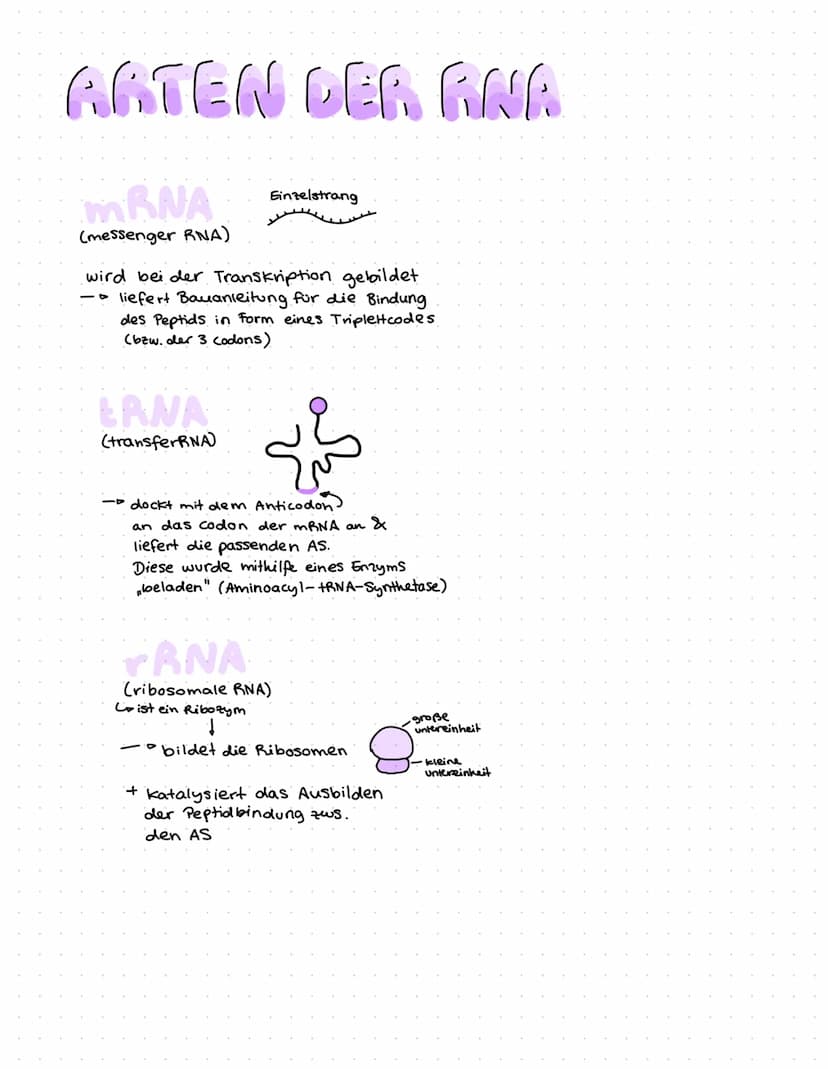 ARTEN DER RNA
mRNA
Einzelstrang
(messenger RNA)
wird bei der Transkription gebildet
→ liefert Bauanleitung für die Bindung
des Peptids in Form eines Triplettcodes
(bzw. der 3 codons)
tRNA
(transferRNA)
→ dockt mit dem Anticodon
an das codon der mRNA an &
liefert die passenden AS.
Diese wurde mithilfe eines Enzyms
„beladen" (Aminoacyl-tRNA-Synthetase)
rRNA
(ribosomale RNA)
↳ ist ein Ribozym
→ bildet die Ribosomen
große
untereinheit
kleine
untereinheit
+ katalysiert das Ausbilden
der Peptidbindung zws.
den AS